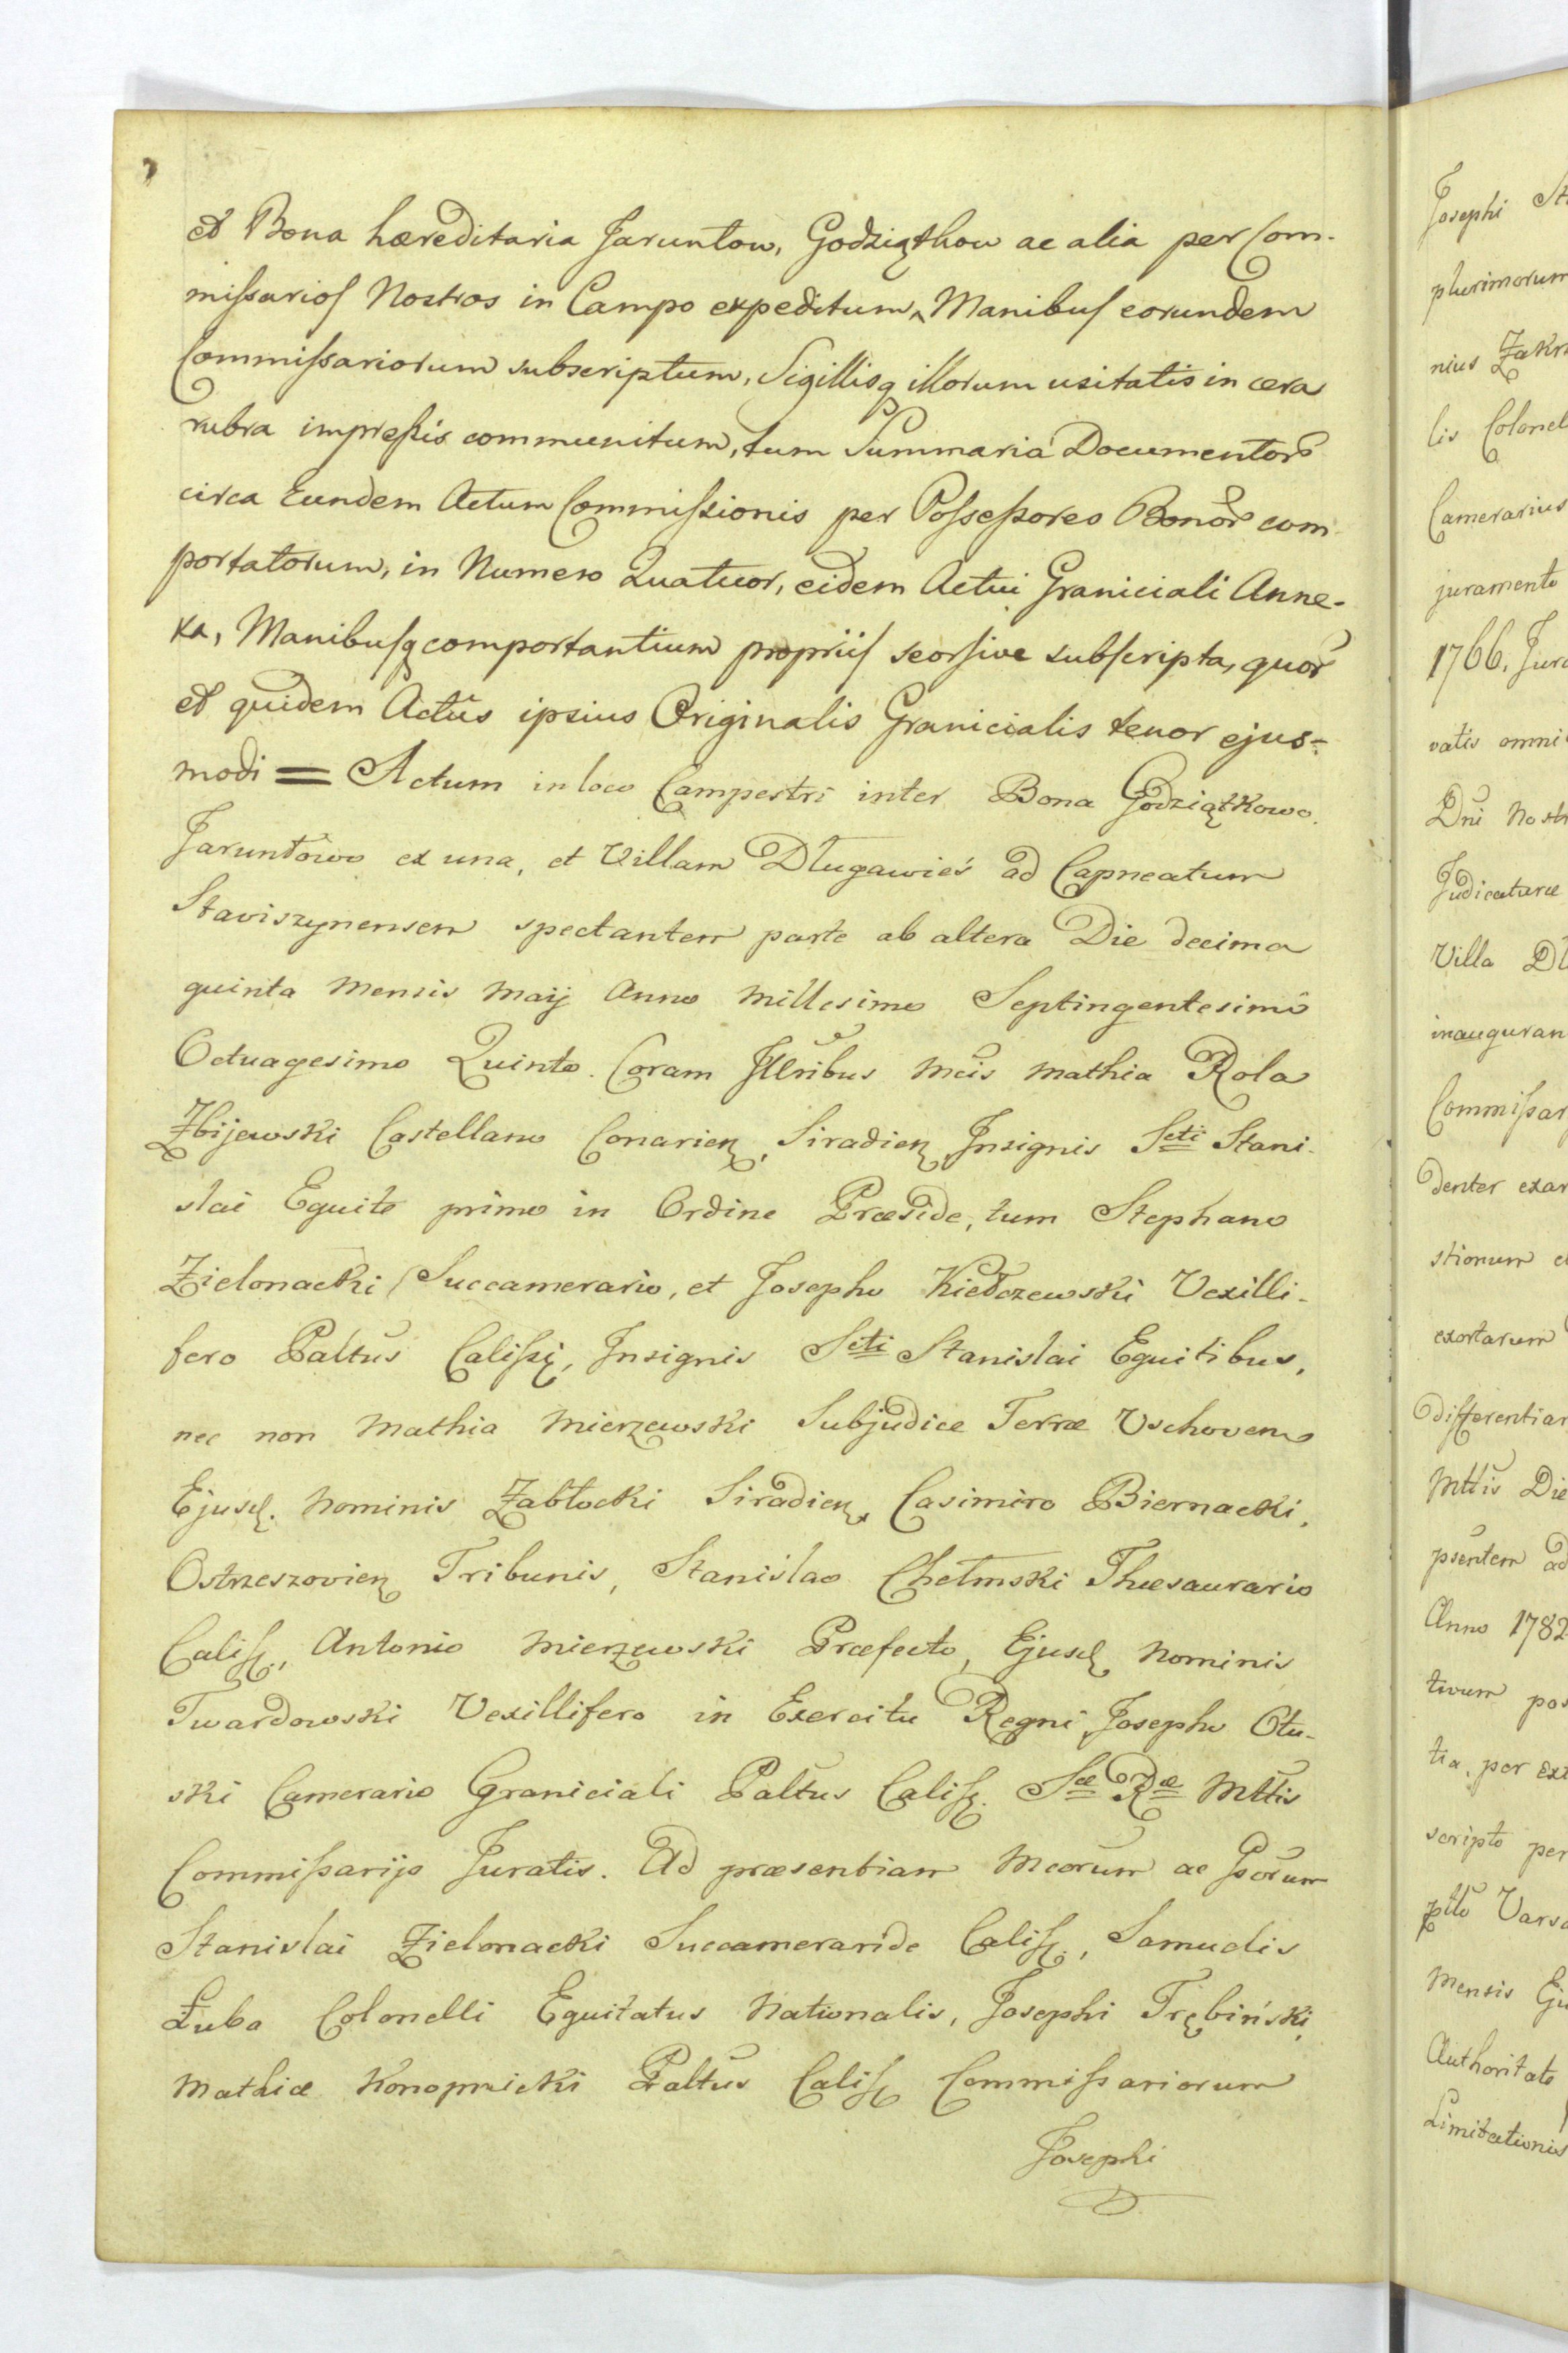 et Bona hæreditaria Jaruntow, Godziąthow ac alia per Com-
missarios Nostros in Campo expeditum, Manibus eorundem
Commissariorum subscriptum, Sigillisq illorum usitatis in cera
rubra impressis communitum, tum Summaria Documentor
circa Eundem Actum Commissionis per Possessores Bonor com
portatorum, in Numero Quatuor, eidem Actui Graniciali Anne-
xa, Manibusq comportantium propriis seorsive subscripta, quor
et quidem Actus ipsius Originalis Granicialis tenor ejus-
modi = Actum in loco Campestri inter Bona Godziątkowo.
Jaruntowo ex una, et Villam Długawieś ad Capneatum
Staviszynensem spectantem parte ab altera Die decima
quinta Mensis Maij Anno Millesimo Septingentesimo
Octuagesimo Quinto. Coram Illribus Mcis Mathia Rola
Zbijewski Castellano Conarien, Siradien, Insignis Scti Stani-
slai Equite primo in Ordine Præside, tum Stephano
Zielonacki Succamerario, et Josepho Kiełczewski Vexilli-
fero Paltus Calissi, Insignis Scti Stanislai Equitibus,
nec non Mathia Mierzewski Subjudice Terræ Vschoven
Ejusd. Nominis Zabłocki Siradien, Casimiro Biernacki,
Ostrzeszovien Tribunis, Stanislao Chełmski Thesaurario
Caliss., Antonio Mierzewski Præfecto, Ejusd Nominis
Twardowski Vexillifero in Exercitu Regni, Josepho Otu-
ski Camerario Graniciali Paltus Caliss. Sæ Ræ Mttis
Commissarijs Juratis. Ad præsentiam Mcorum ac Gsorum
Stanislai Zielonacki Succameraride Caliss., Samuelis
Łuba Colonelli Equitatus Nationalis, Josephi Trębiński,
Mathiæ Konopnicki Paltus Caliss Commissariorum
Josephi
Josephi
plurimorum
nius
lis
Camerarius
juramento
1766.
vatis
Dni
Judicaturæ
Villa
Commissar
denter
stionum
exortarum
differentiar
Mttis Die
psentem ad
Anno 1782
tivum
tia, per
scripto per
Mensis
Authoritate
Limitationis